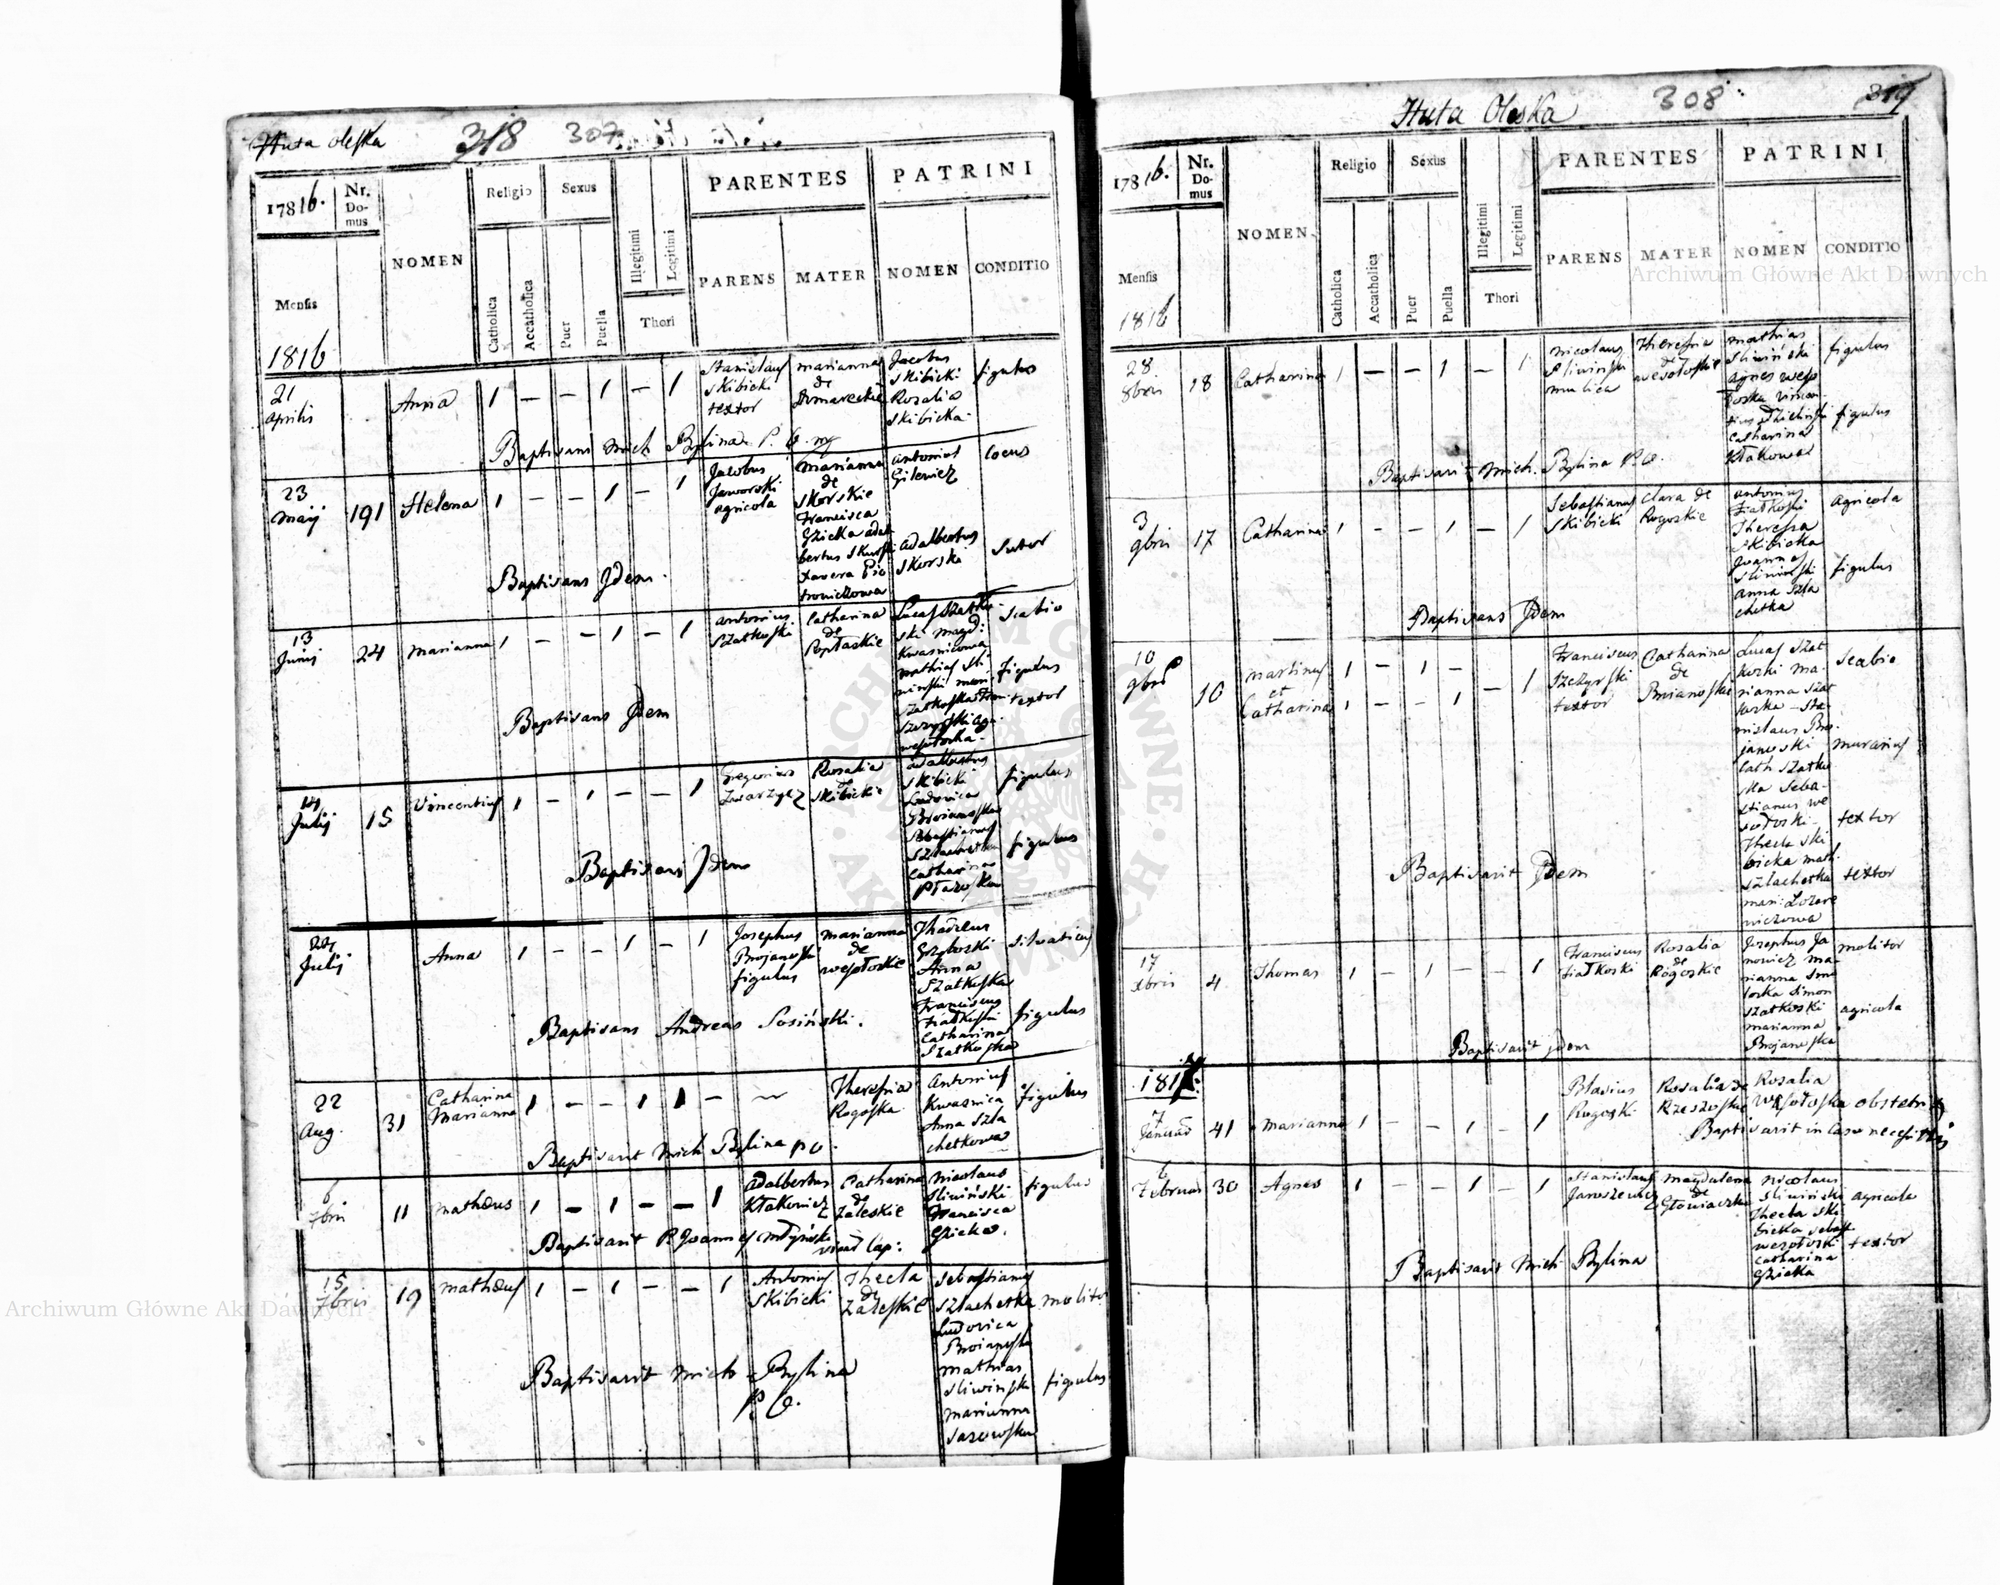 Huta Oleska 318 307
17816. Nr. Domus NOMEN Religio Sexus PARENTES PATRINI
Mensis Catholica Accatholica Puer Puella Illegitimi Legitimi Thori PARENS MATER NOMEN CONDITIO
1816
21 Aprilis
Anna
1 — — 1 — 1
Stanislaus
Skibicki
textor
marianna
de
Jacobus
Skibicki
Rosalia
Skibicka
figulus
Baptisans Mich Bylina P. C.
23 Maij
191
Helena
1 — — 1 — 1
Jacobus
Jaworski
agricola
Marianna
de
Skorskie
Francisca
Gzicka adal
bertus Skorski
Xavera Pio
trowiczowa
Antonius
Gilewicz
Adalbertus
Skorski
sutor
Baptisans Idem
13 Junij
24
Marianna
1 — — 1 — 1
Antonius
Szatkoski
Catharina
de
Lucas Szatko
ski Magd:
Kwasnicowa
Mathias Sli
winski mari
scabio
figulus
textor
Baptisans Idem
14 Julij
15
Vincentius
1 — 1 — — 1
Gregorius
Rosalia
de
Skibickie
Adalbertus
Skibicki
Ludovica
Broianoska
Sebastianus
Szlachetka
Catharina
figulus
figulus
Baptisans Idem
Julij
Anna
1 — — 1 — 1
Josephus
Brojanoski
figulus
Marianna
de
Wesołoskie
Thadeus
Grzyboski
Anna
Szatkoska
Franciscus
Fiałkoski
Catharina
Szatkoska
silvaticus
figulus
Baptisans Andreas Sosiński.
22 Aug.
31
Catharina
Marianna
1 — — 1 1 — ~
Theresia
Rogoska
Antonius
Kwasnica
Anna Szla
chetkowa
figulus
Baptisavit Mich Bylina P C.
6 7bris
11
Mathæus
1 — 1 — — 1
Adalbertus
Kłakowicz
Catharina
de
Zaleskie
Nicolaus
Sliwiński
Francisca
Gzicka.
figulus
Baptisavit P. Joannes Młyński
15 7bris
19
Mathæus
1 — 1 — — 1
Antonius
Skibicki
Thecla
de
Zaleskie
Sebastianus
Szlachetka
Ludovica
Broianoska
Mathias
Sliwinski
Marianna
molitor
figulus
Baptisavit Mich Bylina
P. C.
Huta Oleska 308 319
17816. Nr. Domus NOMEN Religio Sexus PARENTES PATRINI
Mensis Catholica Accatholica Puer Puella Illegitimi Legitimi Thori PARENS MATER NOMEN CONDITIO
1816
28 8bris
18
Catharina
1 — — 1 — 1
Nicolaus
Sliwinski
Theresia
de
Wesołoskie
Mathias
Sliwinski
Agnes Weso
łoska
Catharina
Kłakowa
figulus
figulus
Baptisavit Mich. Bylina P. C.
3 9bris
17
Catharina
1 — — 1 — 1
Sebastianus
Skibicki
Clara de
Rogoskie
Antonius
Fiałkoski
Theressa
Skibicka
Joannes
Sliwinski
Anna Szla
chetka
agricola
figulus
Baptisans Idem
10 9bris
10
Martinus
et
Catharina
1 — 1 —
1 — — 1 — 1
Franciscus
textor
Catharina
de
Lucas Szat
koski Ma
rianna Szat
koska — Sta
nislaus Bro
janowski
Cath Szatko
ska Seba
stianus We
sołoski
Thecla Ski
bicka Math.
Szlachetka
scabio
murarius
textor
textor
Baptisavit Idem
17 xbris
4
Thomas
1 — 1 — — 1
Franciscus
Fiałkoski
Rosalia
de
Rogoskie
Josephus Ja
nowicz Ma
rianna
Simon
Szatkoski
Marianna
Brojanoska
molitor
agricola
Baptisavit Idem
1817.
7 Januar
41
Marianna
1 — — 1 — 1
Blasius
Rogoski
Rosalia de
Rzeszoskie
Rosalia
Wesołoska obstetrix
Baptisavit in casu necessitatis
6 Februar
30
Agnes
1 — — 1 — 1
Stanislaus
Jaroszewicz
Magdalena
de
Nicolaus
Sliwiński
Thecla Ski
bicka Sebast
Wesołoski
Catharina
Gzicka
agricola
textor
Baptisavit Mich Bylina
Archiwum Główne Akt Dawnych
Archiwum Główne Akt Dawnych
ARCHIWUM GŁÓWNE AKT DAWNYCH